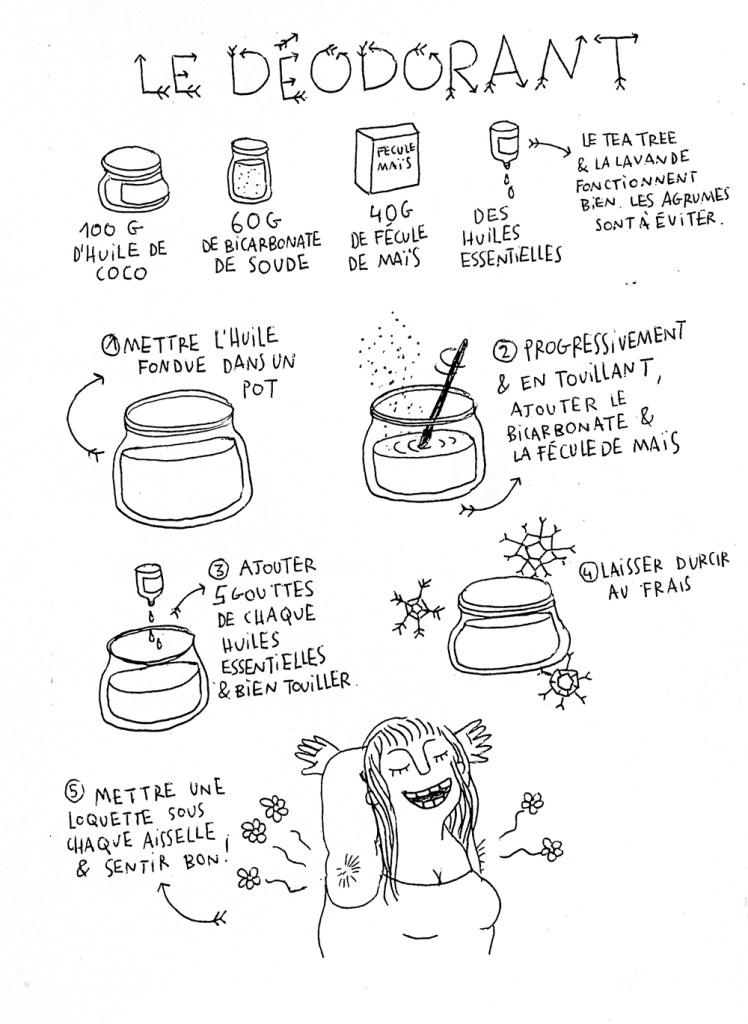 LE DÉODORANT
100 G
D'HUILE DE
COCO
60G
DE BICARBONATE
DE SOUDE
FECULE
MAÏS
40G
DE FÉCULE
DE MAÏS
DES
HUILES
ESSENTIELLES
LE TEA TREE
& LA LAVANDE
FONCTIONNENT
BIEN. LES AGRUMES
SONT À ÉVITER.
① METTRE L'HUILE
FONDUE DANS UN
POT
② PROGRESSIVEMENT
& EN TOUILLANT,
AJOUTER LE
BICARBONATE &
LA FÉCULE DE MAÏS
③ AJOUTER
5 GOUTTES
DE CHAQUE
HUILES
ESSENTIELLES
& BIEN TOUILLER.
④ LAISSER DURCIR
AU FRAIS
⑤ METTRE UNE
LOQUETTE SOUS
CHAQUE AISSELLE
& SENTIR BON!